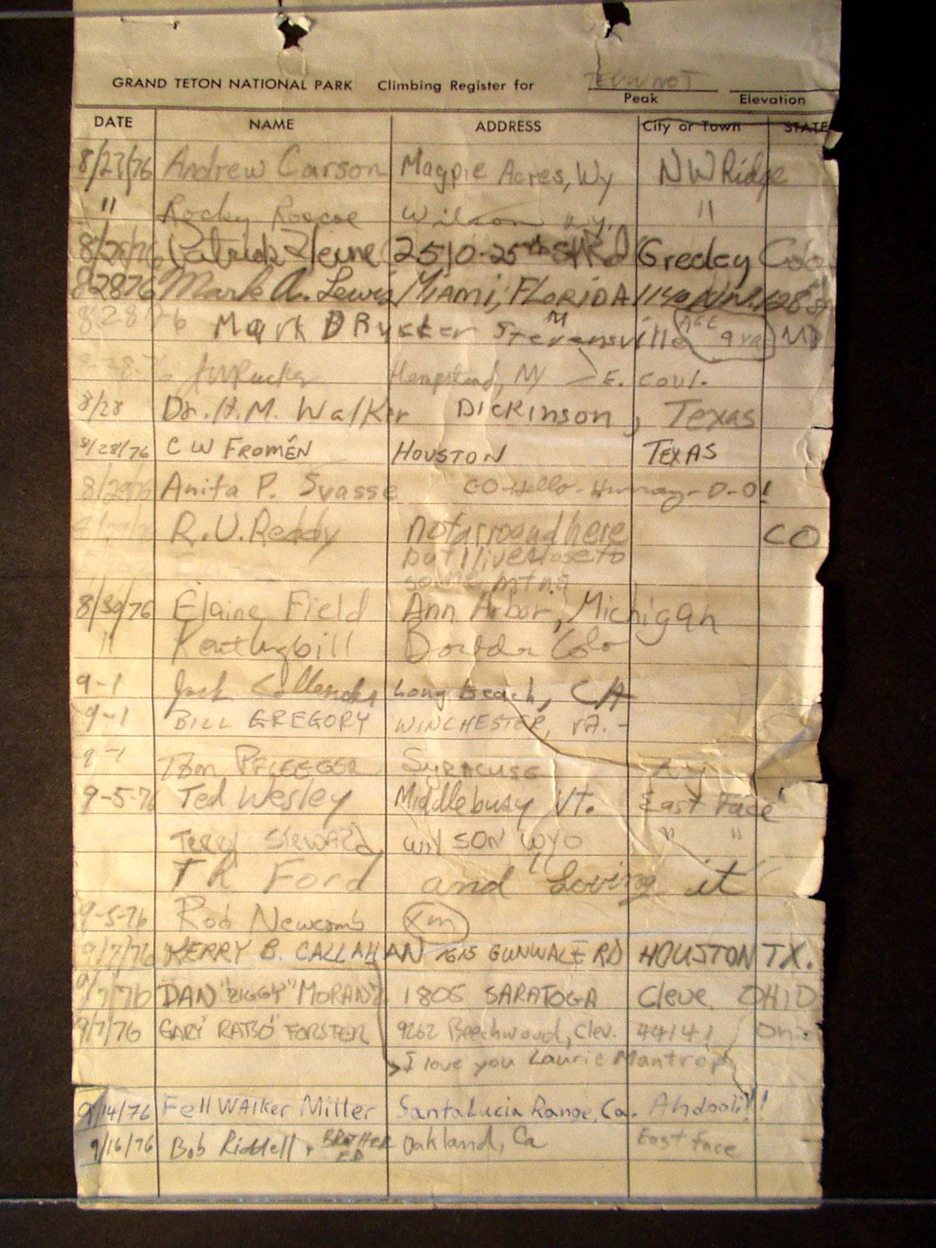 GRAND TETON NATIONAL PARK Climbing Register for TEEWINOT
Peak Elevation
DATE NAME ADDRESS City or Town STATE
8/27/76 Andrew Carson Magpie Acres, Wy NW Ridge
" Rocky Roscoe Wilson Wy. "
Patrick 2510-25th Greeley Colo
82876 Mark A. Lewis MIAMI, FLORIDA
82876 Mark DRucker Stevensville AGE 9 YRS MD
Hempstead, NY E. coul.
8/28 Dr. H. M. Walker Dickinson, Texas
8/28/76 CW FROMÉN HOUSTON TEXAS
Anita P. Svasse CO-Hello-
R.U. Reddy not around here CO
but I live close to
some mtns
8/30/76 Elaine Field Ann Arbor, Michigan
" Colo
9-1 Jack Long Beach, CA
9-1 BILL GREGORY WINCHESTER, VA.-
9-1 Tom PFLEEGER SYRACUSE NY
9-5-76 Ted Wesley Middlebury Vt. East Face
TERRY WILSON WYO " "
TK Ford and loving it
9-5-76 Rod Newcomb
9/7/76 KERRY B. CALLAHAN 7615 GUNWALE RD HOUSTON TX.
9/7/76 DAN "ZIGGY" MORAN 1805 SARATOGA Cleve OHIO
9/7/76 GARY RATSO FORSTER 9262 Beechwood, Clev. 44141
I love you Laurie Mantrop
9/14/76 Fell WAlker Miller Santa Lucia Range, Ca.
9/16/76 Bob Riddell + BROTHER ED Oakland, Ca East Face